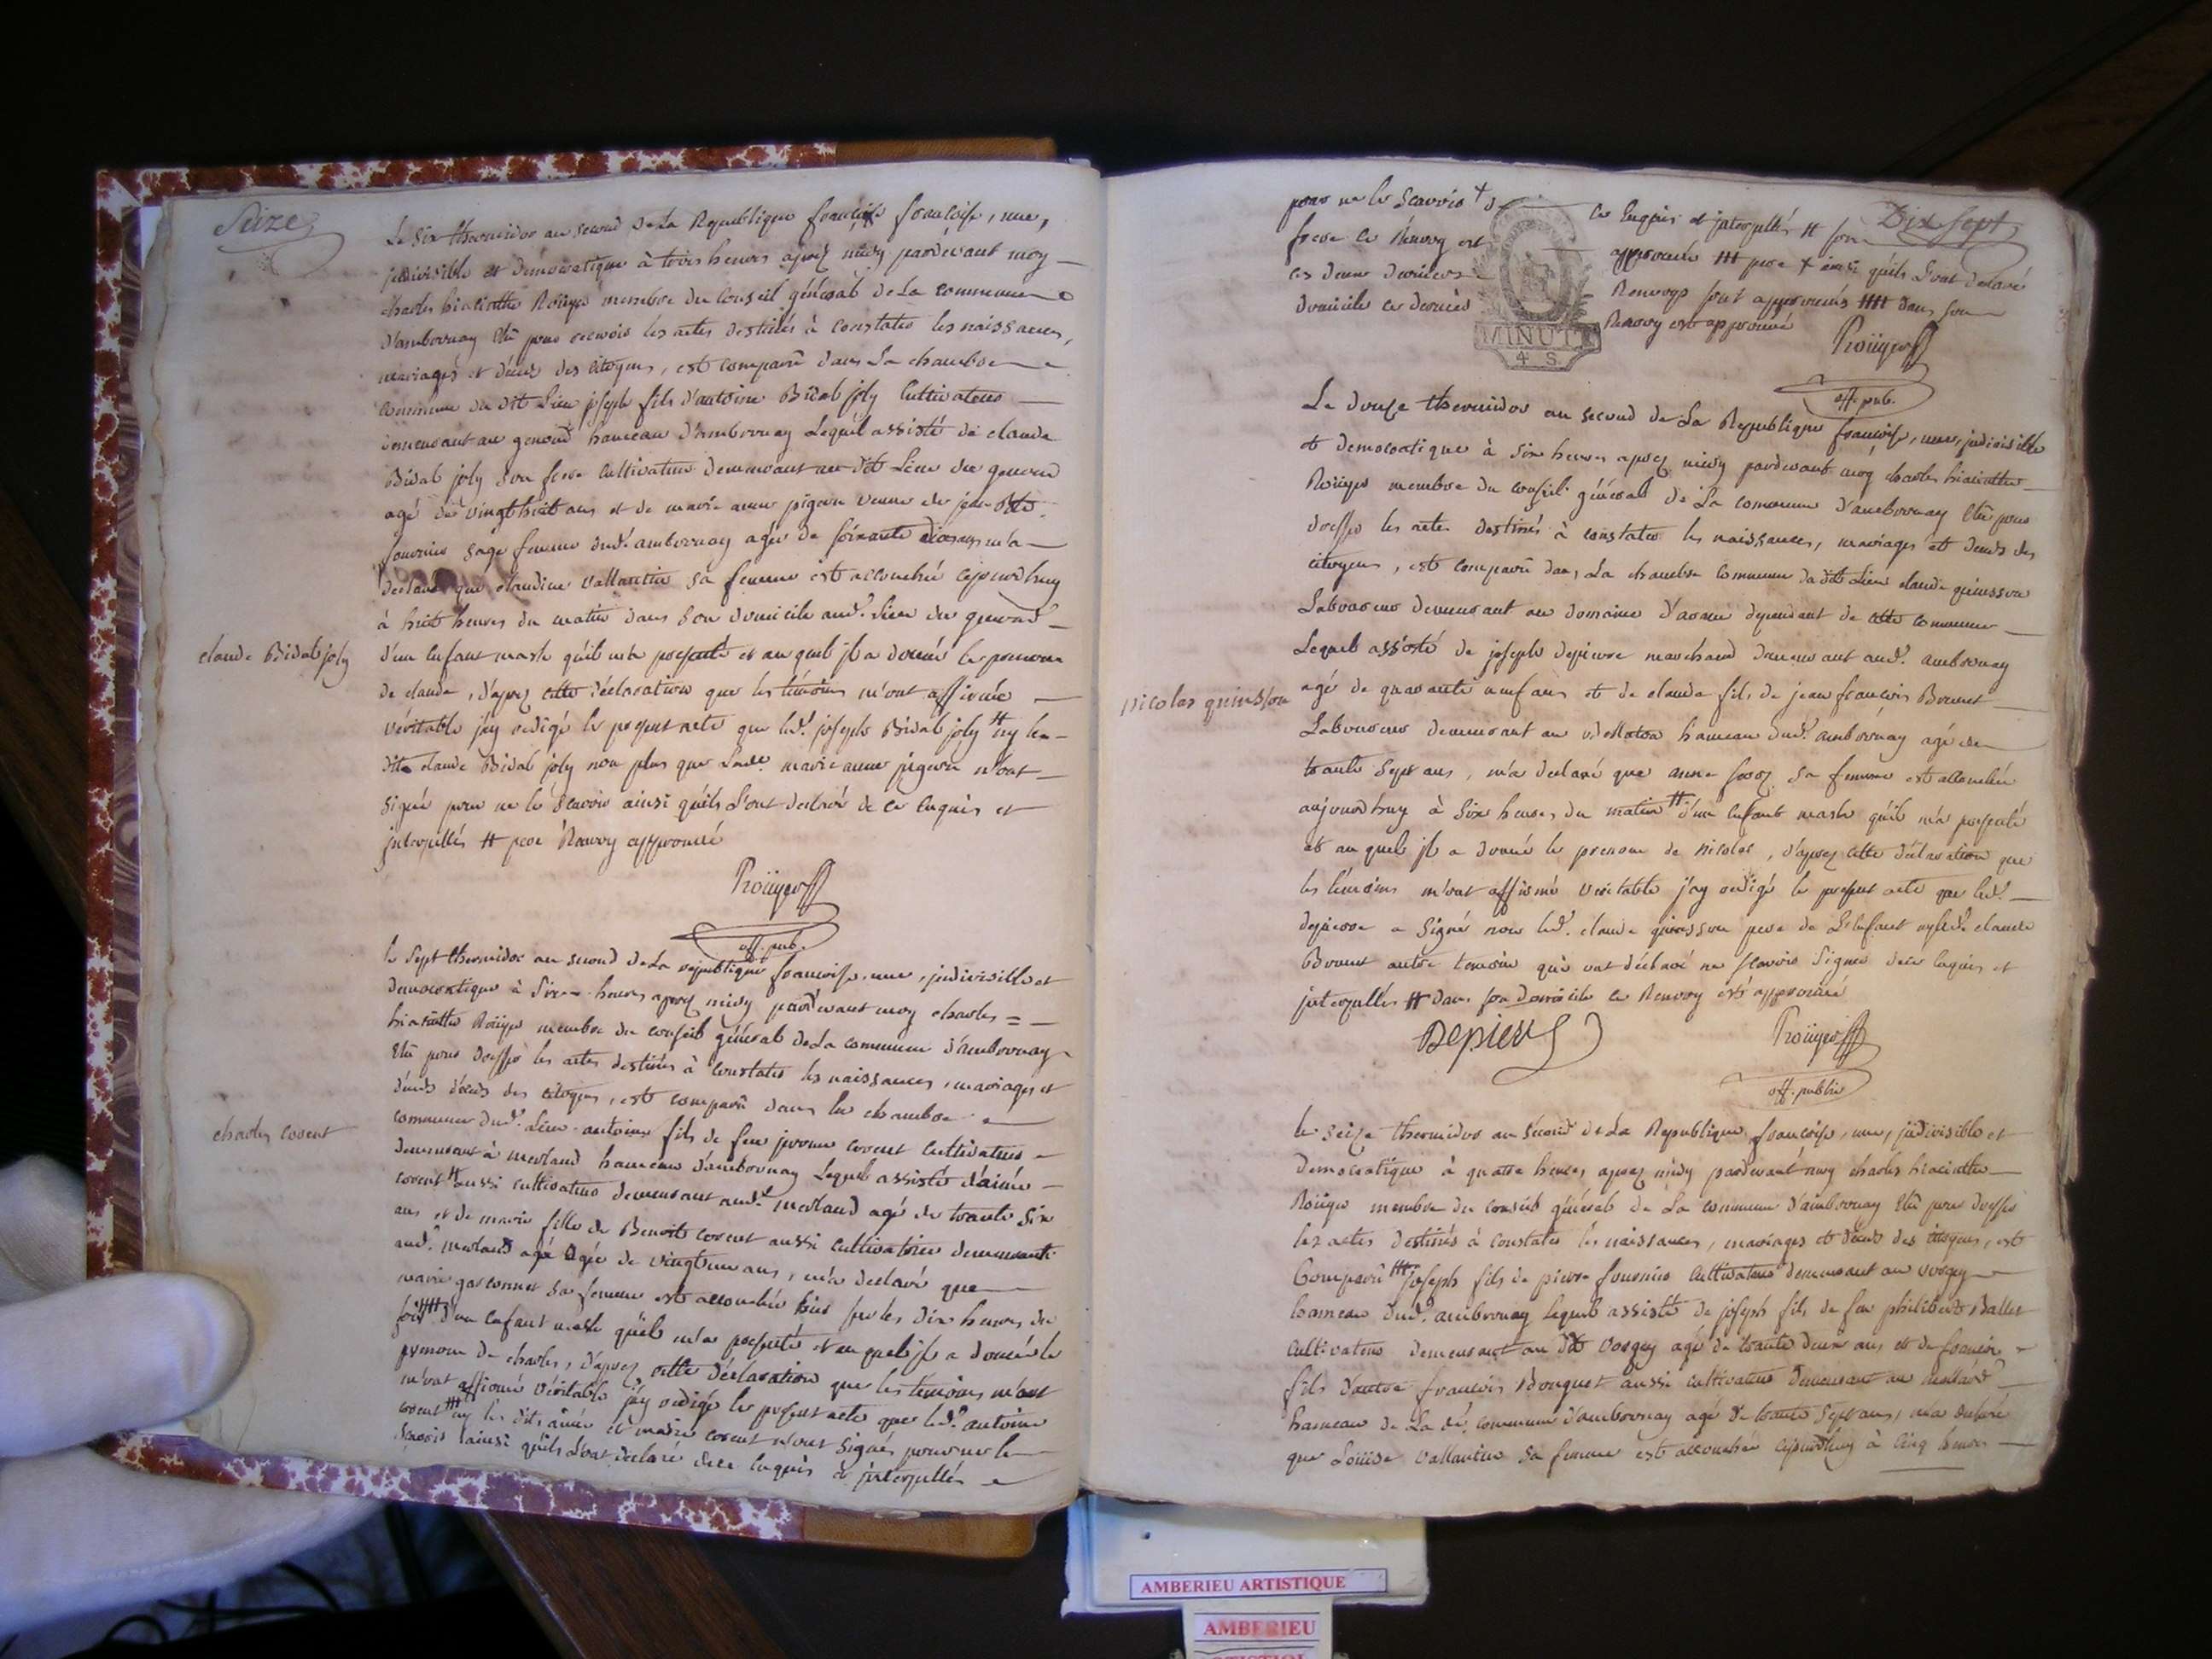 Seize
Le Six thermidor an second de La Republique françoise françoise, une,
jndivisible et democratique à trois heures apres midy pardevant moy
charles hiacinthe Roüyer membre du Conseil général de La commune
d'ambournay Elû pour recevoir les actes destinés à constater les naissances,
mariages et décès des citoyens, est comparû dans La chambre
commune du dit Lieu joseph fils d'antoine Bidal joly Cultivateur
demeurant au genoud hameau d'ambournay Lequel assisté de claude
Bidal joly son frere Cultivateur demeurant au dit Lieu du genoud
agé de vingt huit ans et de marie anne pigeon veuve de
fournier sage femme dud.t ambournay agée de soixante dix ans m'a
declaré que claudine vallantin sa femme est accouchée cejourdhuy
à huit heures du matin dans son domicile aud.t Lieu du genoud
claude Bidal joly
d'un Enfant masle qu'il m'a presenté et au quel jl a donné le prenom
de claude, d'apres cette déclaration que les témoins m'ont affirmée
véritable j'ay redigé le present acte que led.t joseph Bidal joly # ny le
dit claude Bidal joly non plus que lad.e marie anne pigeon n'ont
signé pour ne le sçavoir ainsi qu'ils l'ont declaré de ce Enquis et
jnterpellés # pere Renvoy approuvé
Roüyer
off. pub.
le Sept thermidor an second de La republique françoise, une, jndivisible et
democratique à Six heures apres midy pardevant moy charles =
hiacinthe Roüyer membre du conseil général de La commune d'ambournay
Elû pour dresser les actes destinés à constater les naissances, mariages et
décès des citoyens, est comparû dans la chambre
charles covent
commune dud.t Lieu antoine fils de feu covent Cultivateur
demeurant à merland hameau d'ambournay Lequel assisté d'aimé
covent # aussi cultivateur demeurant aud.t merland agé de trante six
ans et de marie fille de Benoit covent aussi Cultivatrice demeurante
aud.t merland agé agée de vingt un ans, m'a declaré que
marie gasconnet sa femme est accouchée hier sur les dix heures du
soir d'un Enfant masle qu'il m'a presenté et au quel jl a donné le
prenom de charles, d'apres cette déclaration que les temoins m'ont
m'ont affirmé véritable j'ay redigé le present acte que led.t antoine
covent ny les dits aimé et marie covent n'ont signé pour ne le
sçavoir ainsi qu'ils l'ont declaré de ce Enquis et jnterpellés
Dix Sept
pour ne le sçavoir
frere ce Renvoy est
ces deux derniers
domicile ce dernier
MINUTE
4 S.
ce Enquis et jnterpellés # son
approuvée pere ainsi qu'ils l'ont declaré
Renvoys sont approuvés dans son
Renvoy est approuvé
Roüyer
off. pub.
Le douze thermidor an second de La Republique françoise, une, jndivisible
et democratique à six heures apres midy pardevant moy charles hiacinthe
Roüyer membre du conseil général de La commune d'ambournay Elû pour
dresser les actes destinés à constater les naissances, mariages et décès des
citoyens, est comparû dans La chambre commune du dit Lieu claude quinsson
Laboureur demeurant au domaine dependant de cette commune
Lequel assisté de joseph depierre marchand demeurant aud.t ambournay
nicolas quinsson
agé de quarante neuf ans et de claude fils de jean françois Brunet
Laboureur demeurant au hameau dud.t ambournay agé de
trante sept ans, m'a declaré que anne sa femme est accouchée
aujourdhuy à six heures du matin # d'un Enfant masle qu'il m'a presenté
et au quel jl a donné le prenom de nicolas, d'apres cette déclaration que
les témoins m'ont affirmé véritable j'ay redigé le present acte que led.t
depierre a signé non led.t claude quinsson pere de L'Enfant ny led.t claude
Brunet autre temoin qui ont déclaré ne sçavoir signer de ce Enquis et
jnterpellés # dans son domicile ce Renvoy est approuvé
Depierre
Roüyer
off. public
le seize thermidor an second de La Republique françoise, une, jndivisible et
democratique à quatre heures apres midy pardevant moy charles hiacinthe
Roüyer membre du conseil général de La commune d'ambournay Elû pour dresser
les actes destinés à constater les naissances, mariages et décès des citoyens, est
Comparû joseph fils de pierre fournier Cultivateur demeurant au vorgey
hameau dud.t ambournay lequel assisté de joseph fils de feu philibert Ballet
Cultivateur demeurant au dit vorgey agé de trante deux ans et de françois
fils d'autre françois Bouquet aussi cultivateur demeurant au
hameau de La de.t commune d'ambournay agé de trante sept ans, m'a declaré
que Loüise vallantin sa femme est accouchée cejourdhuy à cinq heures
AMBERIEU ARTISTIQUE
AMBERIEU
ARTISTIQUE